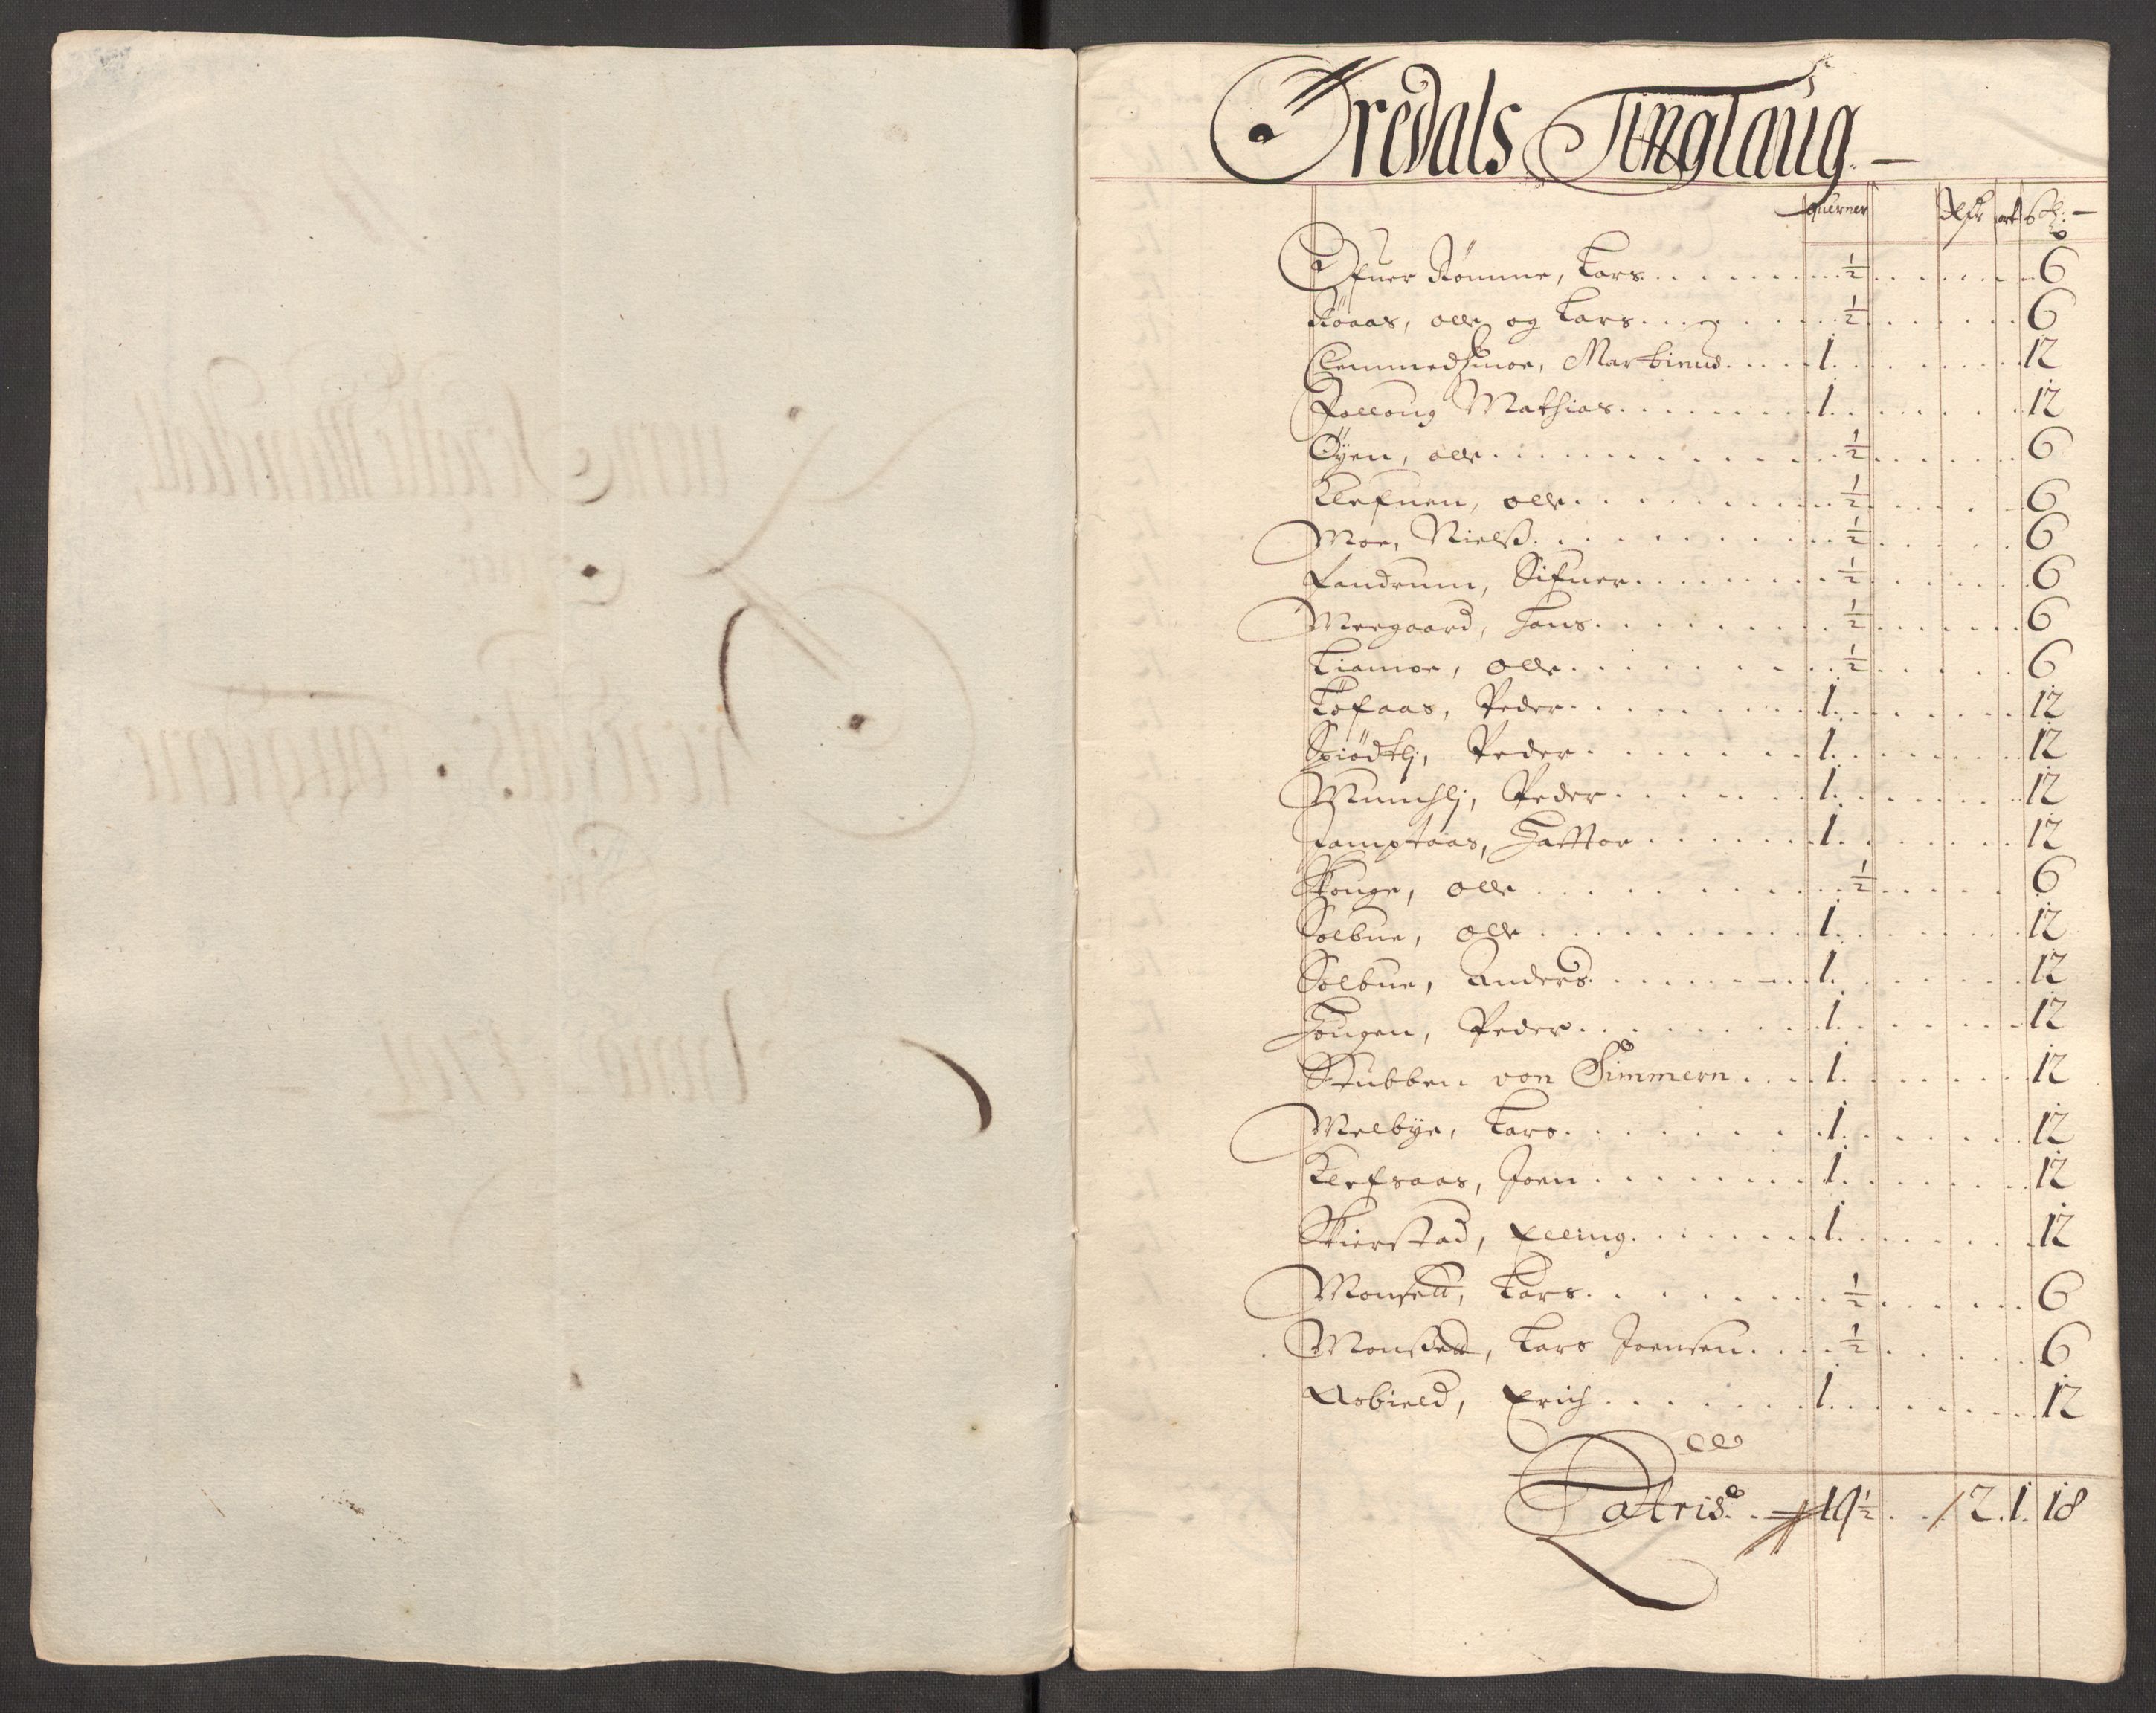 Øredals Tinglaug.
querner Rdr ort sk:
Ofuer Rømme, Lars ½ 6
Røaas, olle og Lars ½ 6
Clemmedsmoe, Martinus 1 12
Folloug Mathias 1 12
Öyen, olle ½ 6
Klefuen, olle ½ 6
Moe, Nielß ½ 6
Landrum, Sifuer ½ 6
Meegaard, Hans ½ 6
Liamoe, Olle ½ 6
Löfaas, Peder 1 12
Spiödtlj, Peder 1 12
Munchlj, Peder 1 12
Kamptaas, Hattor 1 12
Skouge, olle ½ 6
Solbue, olle 1 12
Solbue, Anders 1 12
Hougen, Peder 1 12
Stubben von Simmern 1 12
Melbye, Lars 1 12
Klefsaas, Joen 1 12
Skierstad, Elling 1 12
Monsett, Lars ½ 6
Monsett, Lars Joensen ½ 6
Aobield, Erich 1 12
Latris 19½ 2. 1. 18